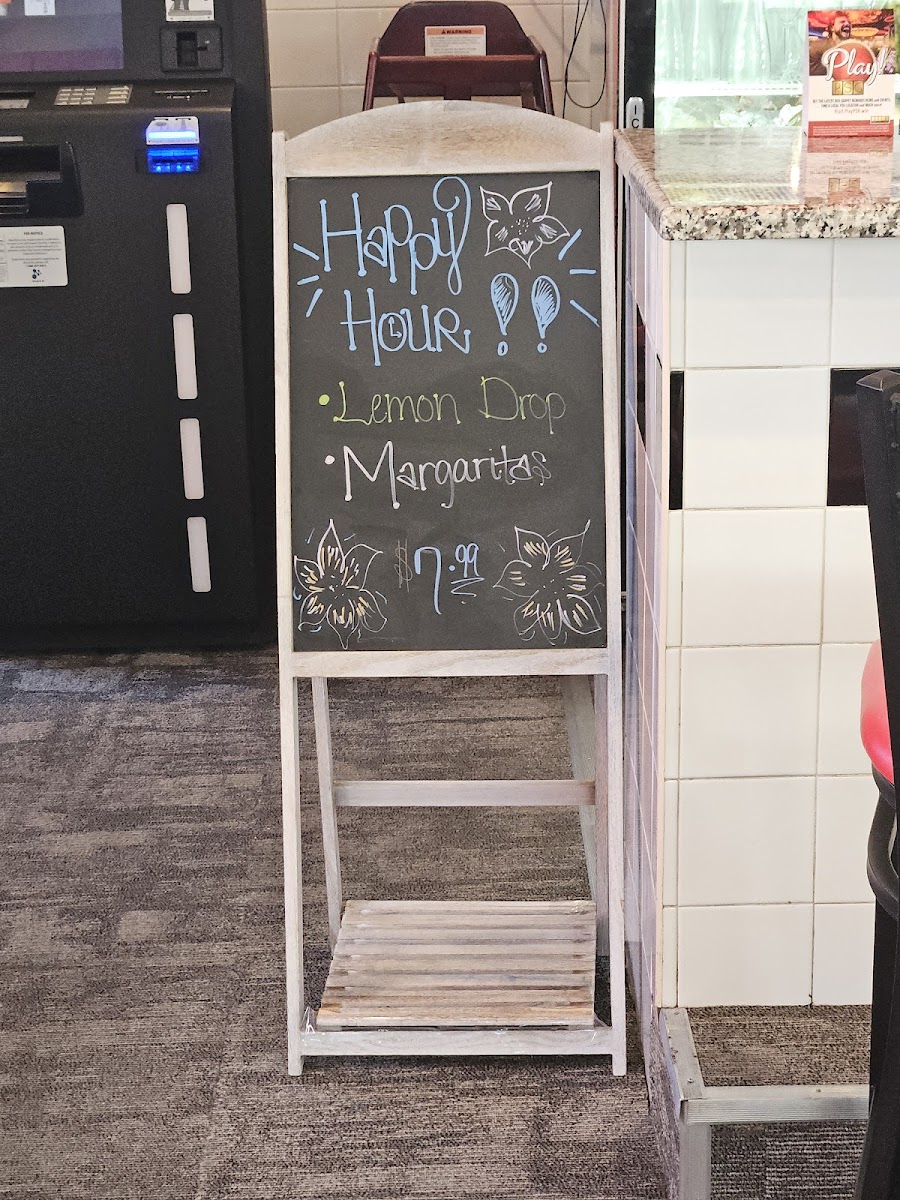 WARNING
Play!
Happy
Hour !!
• Lemon Drop
• Margaritas
$7.99